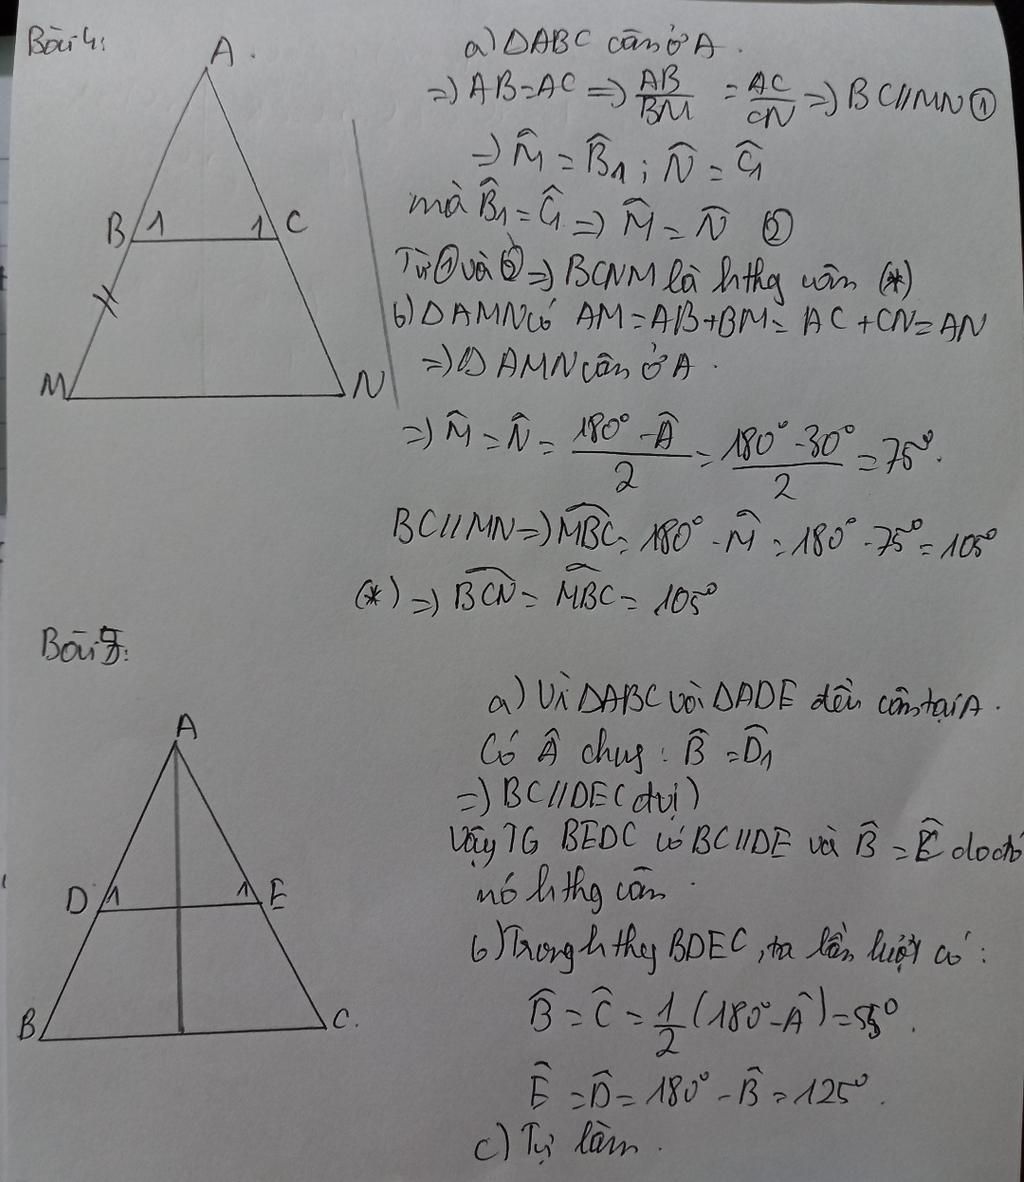 Bài 4:
A
B 1 1 C
M N
a) ΔABC cân ở A.
=> AB=AC => AB/BM = AC/CN => BC//MN ①
=> M̂1 = B̂1 ; N̂ = Ĉ1
mà B̂1 = Ĉ1 => M̂ = N̂ ②
Từ ① và ② => BCNM là hthg cân (*)
b) ΔAMN có AM = AB+BM = AC+CN = AN
=> ΔAMN cân ở A.
=> M̂ = N̂ = (180° - Â)/2 = (180° - 30°)/2 = 75°.
BC//MN => MBC = 180° - M̂ = 180° - 75° = 105°
(*) => BCN = MBC = 105°
Bài 5:
A
D 1 1 E
B C.
a) Vì ΔABC và ΔADE đều cân tại A.
Có Â chug : B̂ = D̂1
=> BC//DE (đvị)
Vậy TG BEDC có BC//DE và B̂ = Ĉ do đó
nó hthg cân.
b) Trong hthg BDEC, ta lần lượt có:
B̂ = Ĉ = 1/2 (180° - Â) = 55°.
Ê = D̂ = 180° - B̂ = 125°.
c) Tự làm.